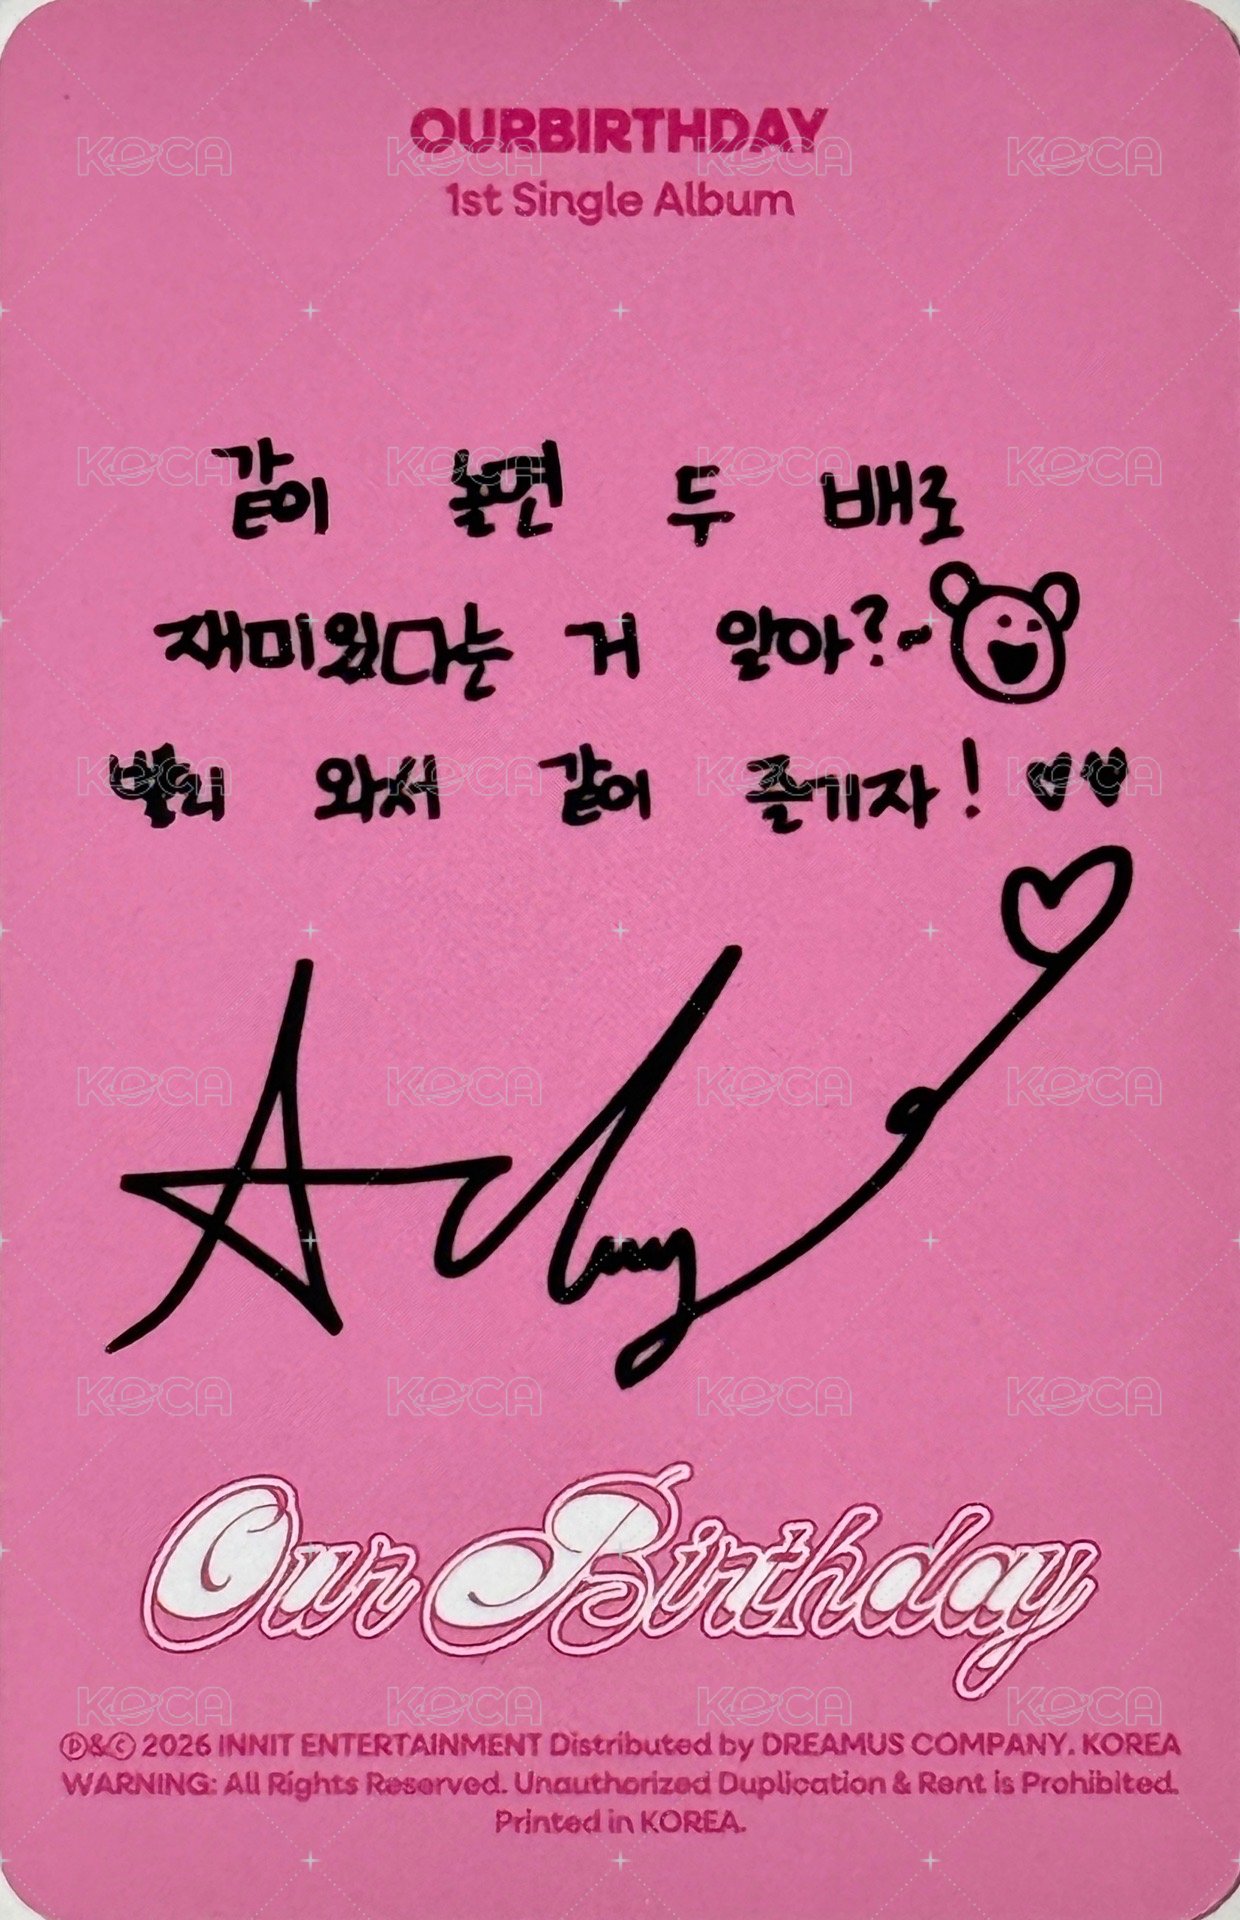 OURBIRTHDAY
1st Single Album
같이 놀면 두 배로
재미있다는 거 알아?~
빨리 와서 같이 즐기자!
Our Birthday
Ⓟ&ⓒ 2026 INNIT ENTERTAINMENT Distributed by DREAMUS COMPANY. KOREA
WARNING: All Rights Reserved. Unauthorized Duplication & Rent is Prohibited.
Printed in KOREA.
KOCA